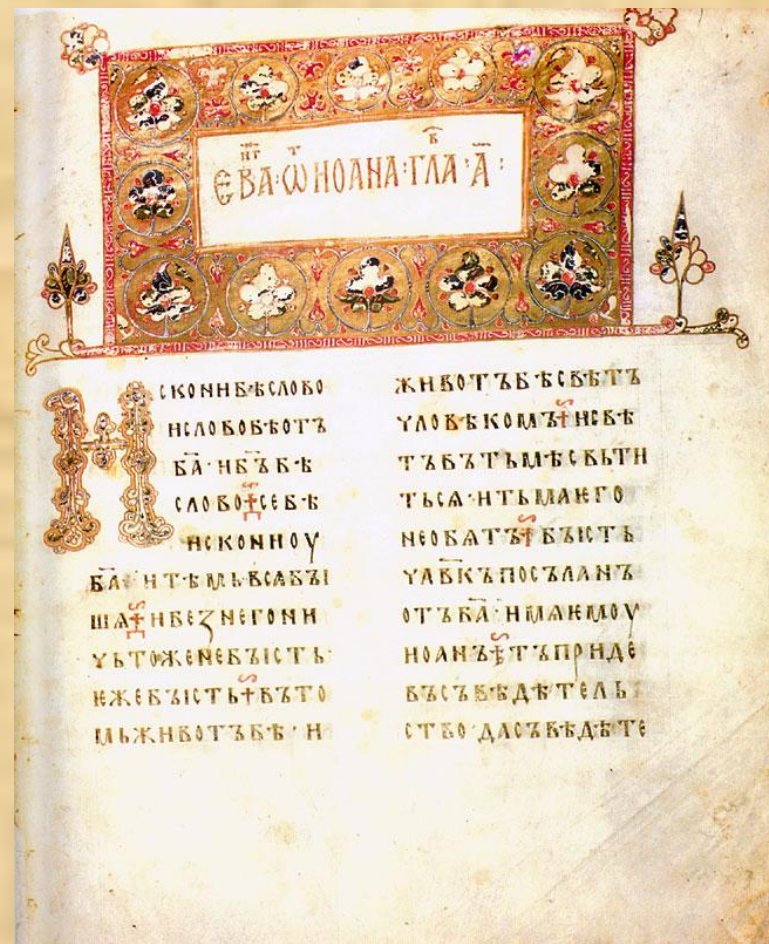 ЕВАⷩ҇Гⷢ҇·Ѡⷮ·ИОАНА·ГЛⷡ҇А·А҃:
ИСКОНИБѢСЛОВО
ИСЛОВОБѢОТЪ
БА҃·ИБЪ҃БѢ
СЛОВО СЕБѢ
ИСКОНИОУ
БА҃·ИТѢМЬВСѦБЪІ
ШѦ ИБЕЗНЕГОНИ
ЧЬТОЖЕНЕБЪІСТЬ·
ѤЖЕБЪІСТЬ ВЪТО
МЬЖИВОТЪБѢ·И
ЖИВОТЪБѢСВѢТЪ
ЧЛОВѢКОМЪ ИСВѢ
ТЪВЪТЬМѢСВЬТИ
ТЬСѦ·ИТЬМАѤГО
НЕОБѦТЪ БЪІСТЬ
ЧЛВ҃КЪПОСЪЛАНЪ
ОТЪБА҃·ИМѦѤМОУ
ИОАНЪ ТЪПРИДЕ
ВЪСЪВѢДѢТЕЛЬ
СТВО·ДАСЪВѢДѢТЕ